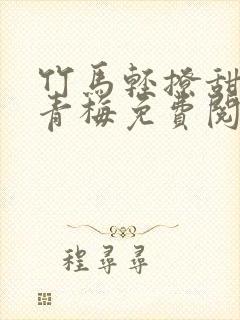 竹馬輕撩甜
青梅免費閱
程尋尋